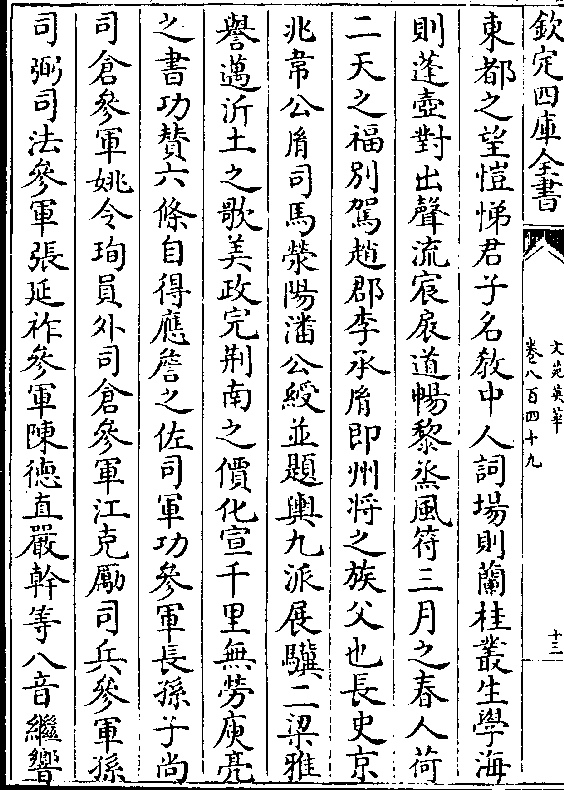 欽定四庫全書
文苑英華
卷八百四十九
十三
東都之望愷悌君子名教中人詞場則蘭桂叢生學海
則蓬壺對出聲流宸扆道暢黎烝風符三月之春人荷
二天之福別駕趙郡李承胤即州将之族父也長史京
兆韋公胤司馬滎陽潘公綬並題輿九派展驥二梁雅
譽邁沂土之歌美政完荆南之價化宣千里無勞庾亮
之書功賛六條自得應詹之佐司軍功參軍長孫子尚
司倉參軍姚令珣員外司倉參軍江克勵司兵參軍孫
司弼司法參軍張延祚參軍陳徳直嚴幹等八音繼響